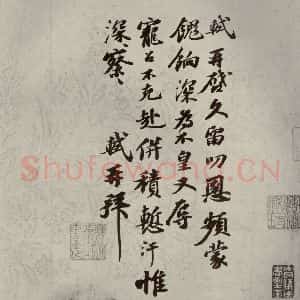 軾再啓久留叨恩頻蒙
餽餉深為不皇又辱
寵召不克赴併積慙汗惟
深察〻
軾再拜
Shufawang.CN